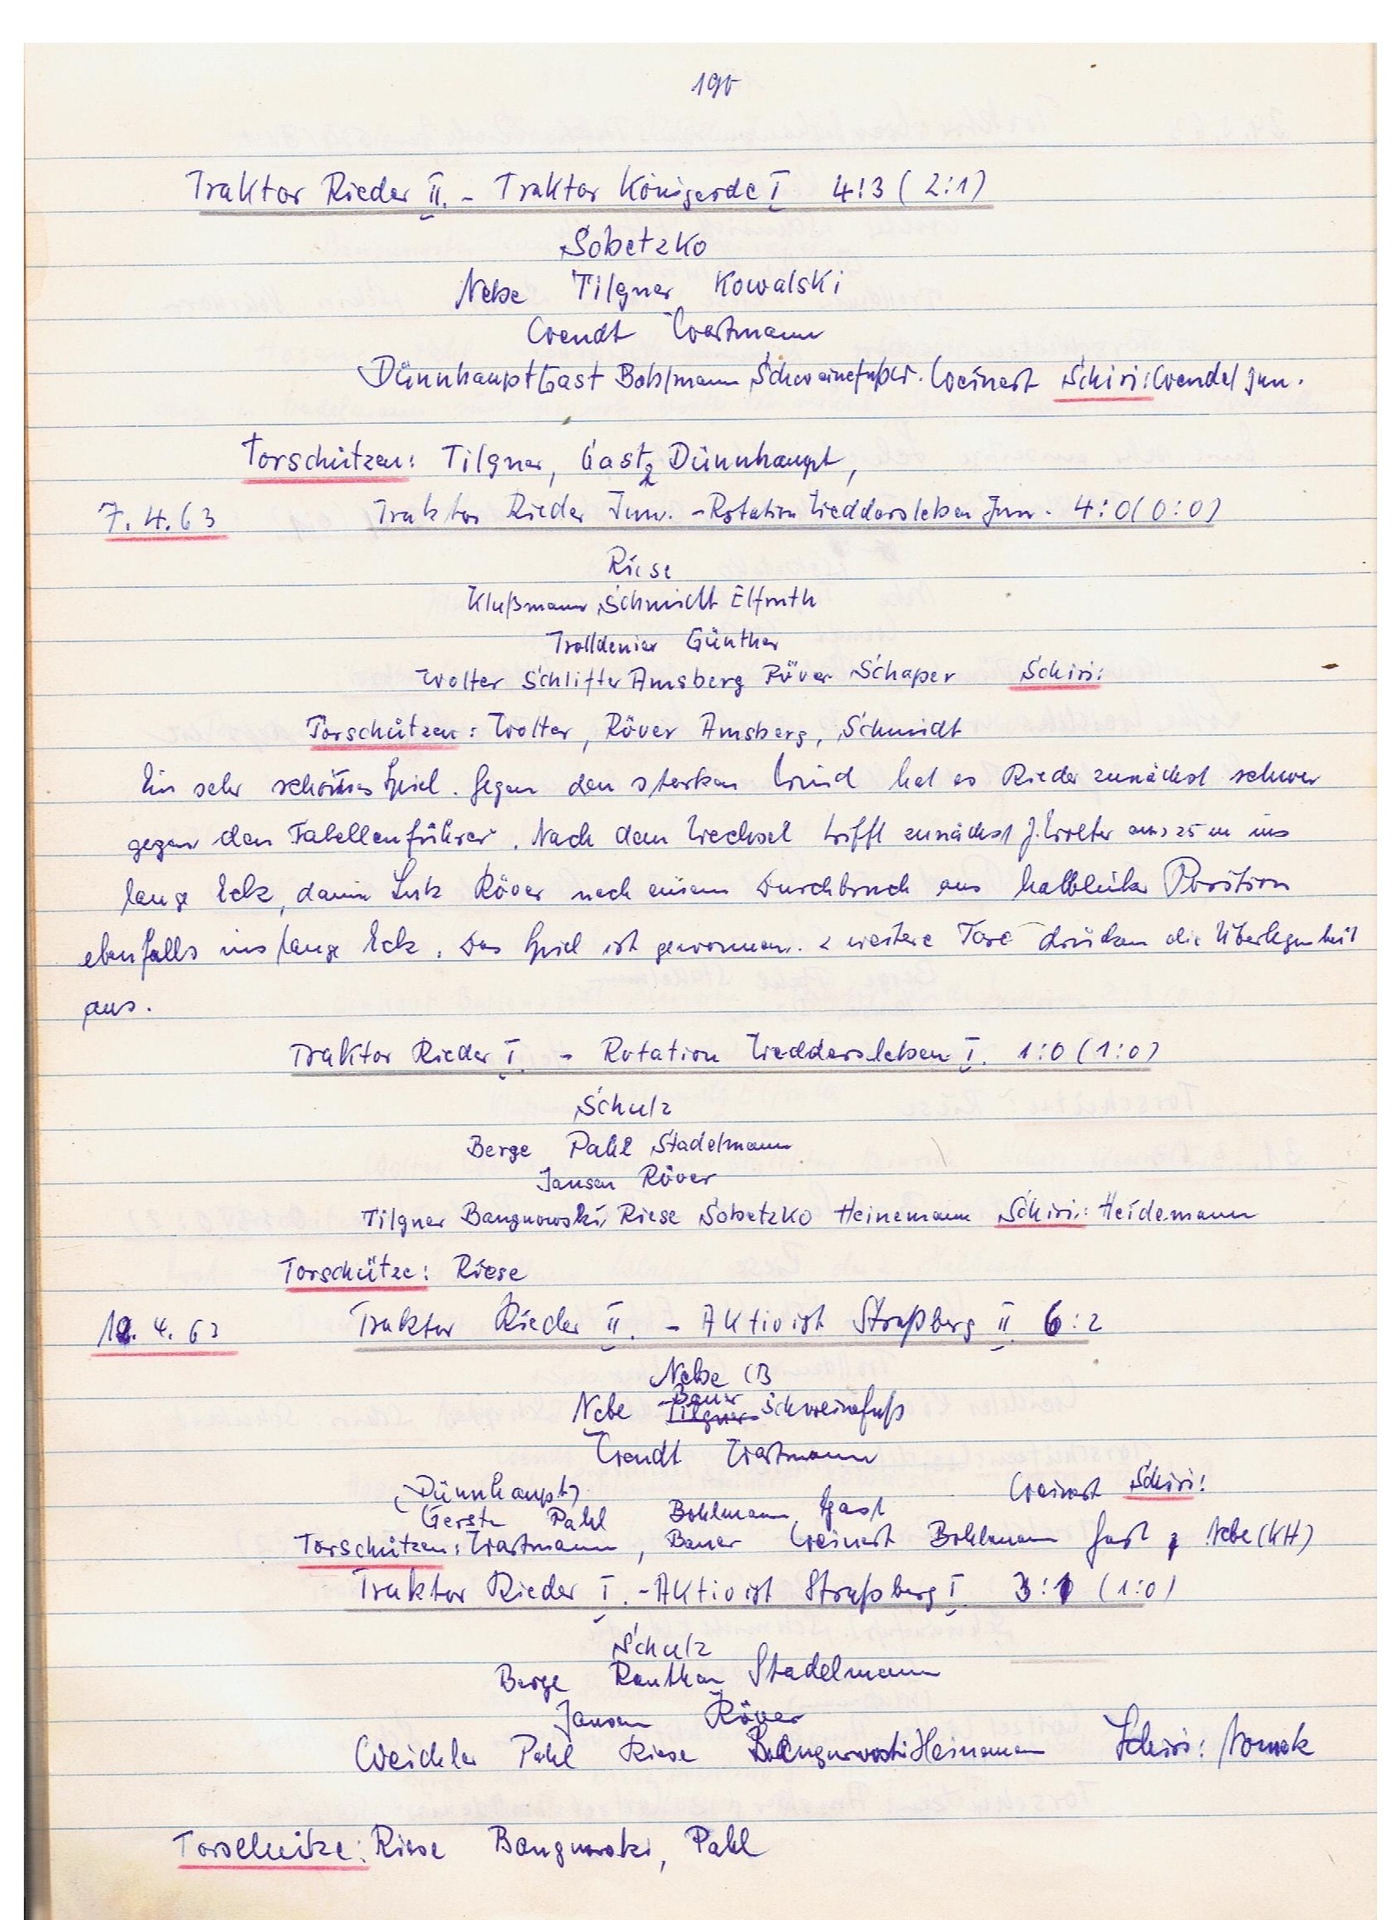 190
Traktor Rieder II. - Traktor Königerode I 4:3 (2:1)
Sobetzko
Nebe Tilgner Kowalski
Wendt Wartmann
Dünnhaupt Gast Bohlmann Schweinefuß Weinert Schiri: Wendel jun.
Torschützen: Tilgner, Gast 2 Dünnhaupt,
7.4.63 Traktor Rieder Jun. - Rotation Weddersleben Jun. 4:0 (0:0)
Riese
Klußmann Schmidt Elfruth
Trolldenier Günther
Wolter Schlifter Amsberg Röver Schaper Schiri:
Torschützen: Wolter, Röver Amsberg, Schmidt
Ein sehr schönes Spiel. Gegen den starken Wind hat es Rieder zunächst schwer
gegen den Tabellenführer. Nach dem Wechsel trifft zunächst J. Wolter aus 25 m ins
lange Eck, dann Lutz Röver nach einem Durchbruch aus halblinker Position
ebenfalls ins lange Eck. Das Spiel ist gewonnen. 2 weitere Tore drücken die Überlegenheit
aus.
Traktor Rieder I. - Rotation Weddersleben I. 1:0 (1:0)
Schulz
Berge Pahl Stadelmann
Jansen Röver
Tilgner Bangnowski Riese Sobetzko Heinemann Schiri: Heidemann
Torschütze: Riese
4. 63 Traktor Rieder II. - Aktivist Straßberg II 6:2
Nebe (B
Nebe Bauer Tilgner Schweinefuß
Wendt Wartmann
(Dünnhaupt) Weinert Schiri:
Gerste Pahl Bohlmann Gast
Torschützen: Wartmann, Bauer Weinert Bohlmann Gast, Nebe (KH)
Traktor Rieder I. - Aktivist Straßberg I. 3:1 (1:0)
Schulz
Berge Stadelmann
Jansen Röver
Weichler Pahl Riese Bangnowski Heinemann Schiri:
Torschütze: Riese Bangnowski, Pahl